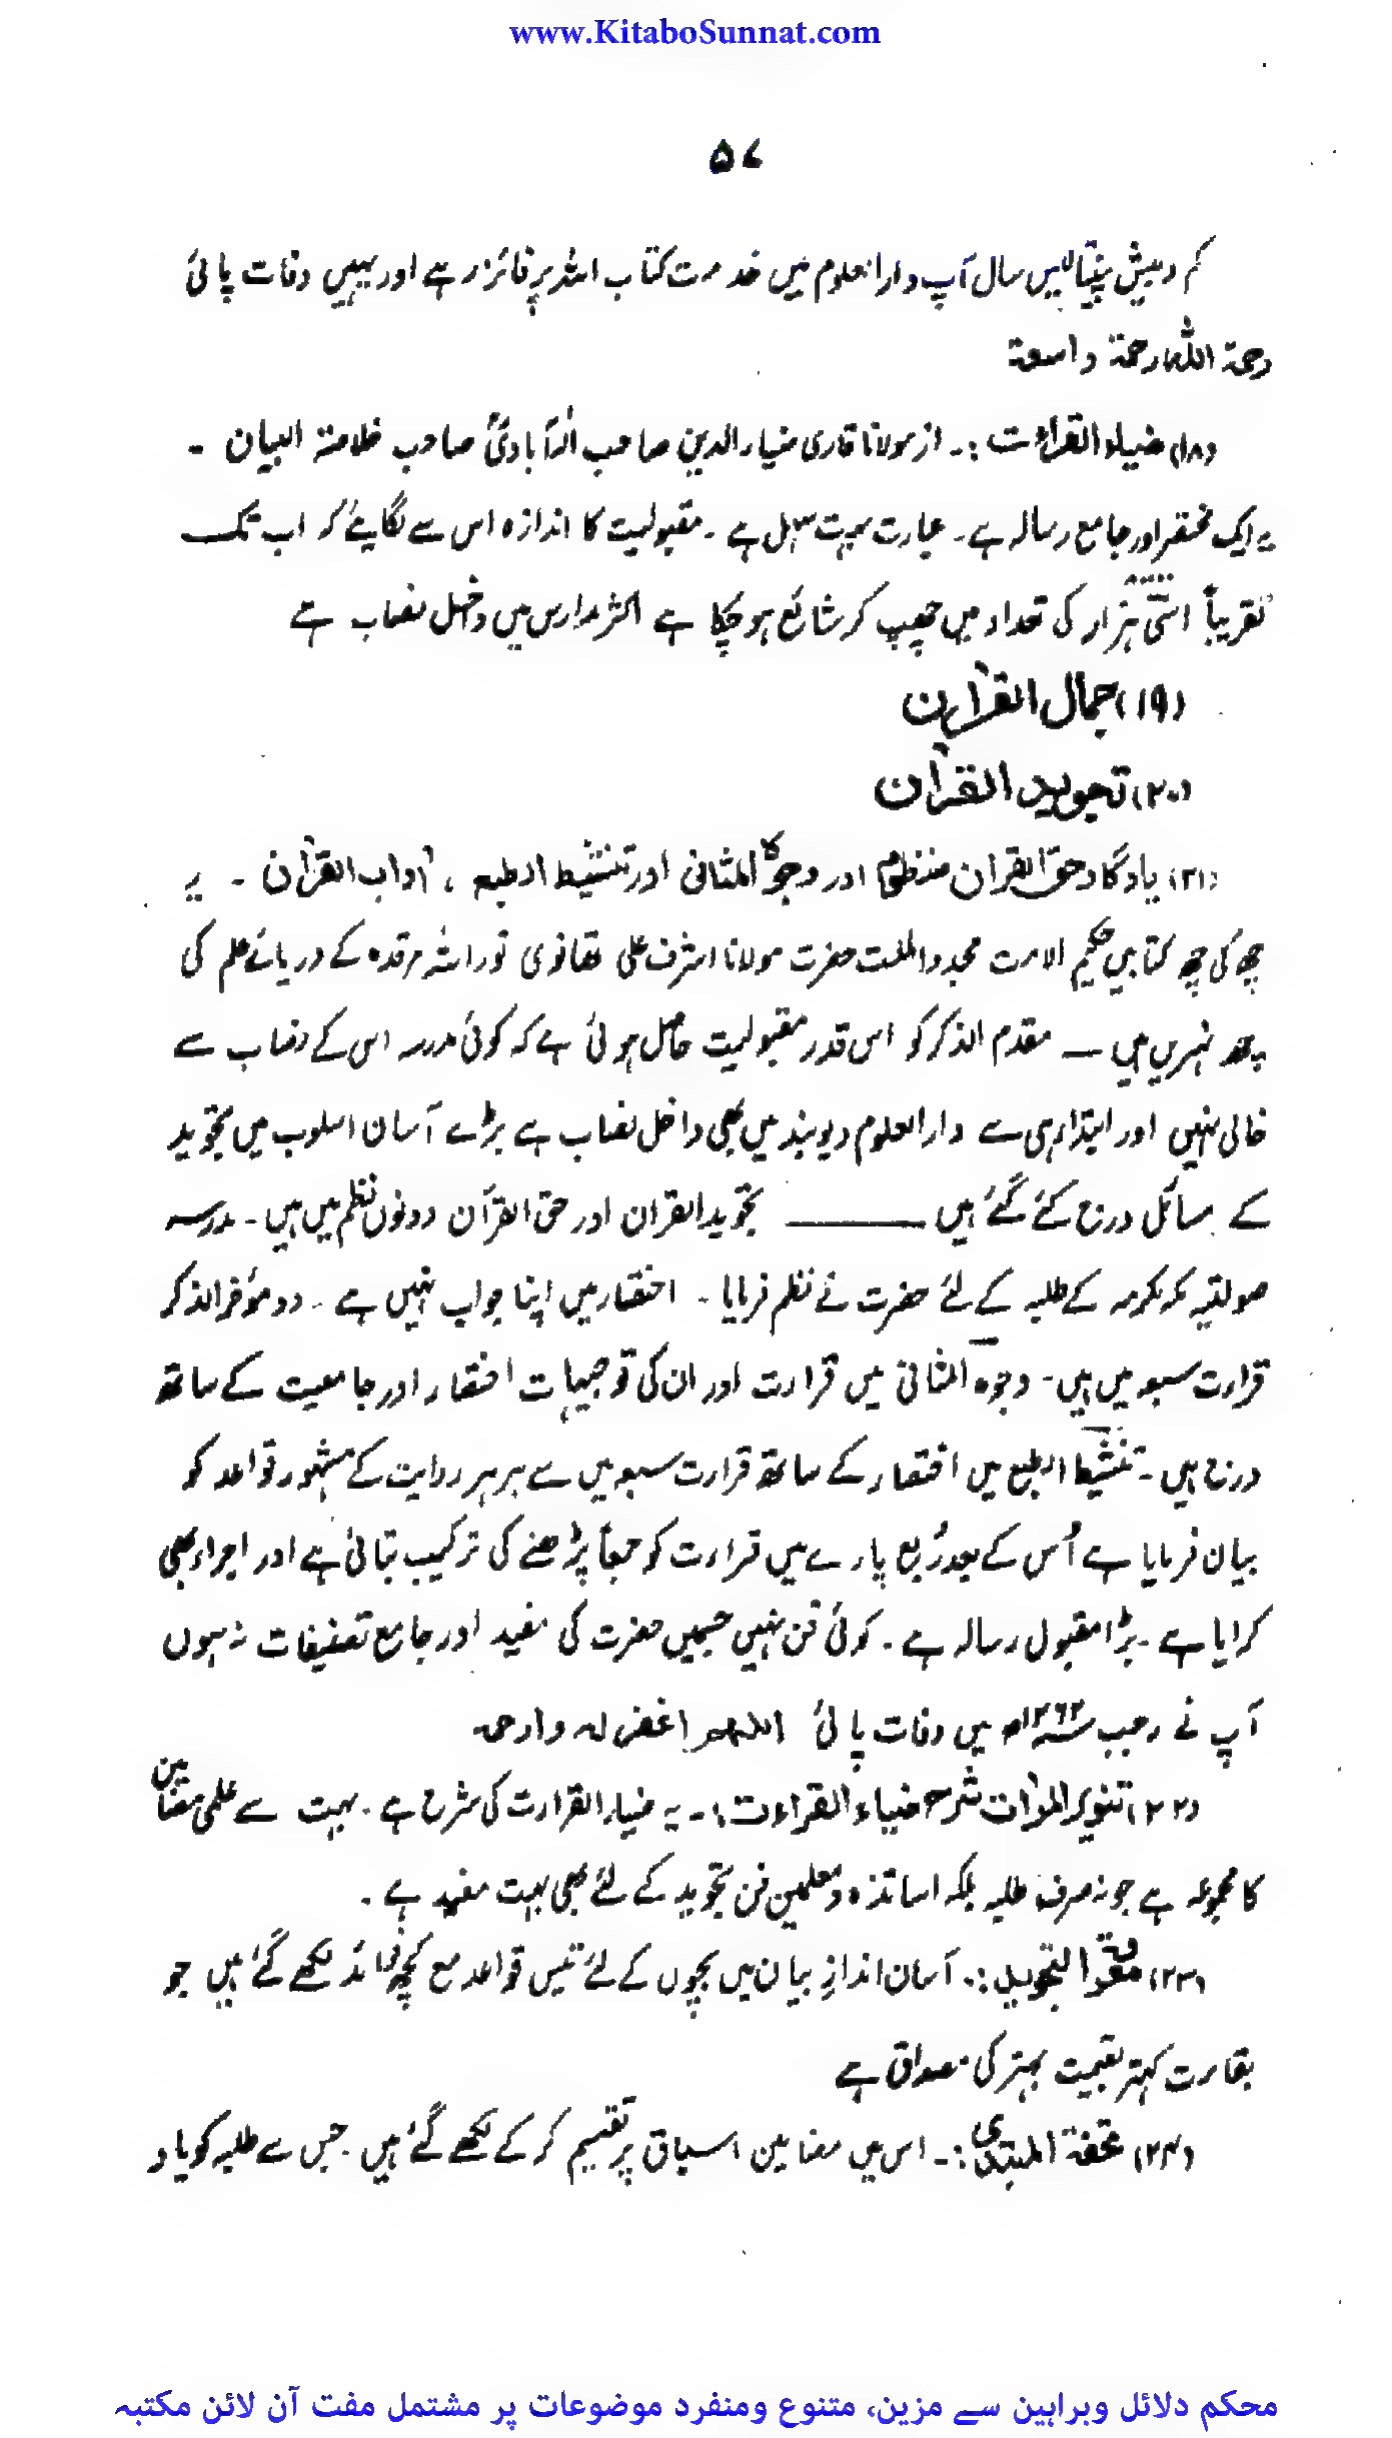 www.KitaboSunnat.com
۵۷
کم وبیش پینتالیس سال آپ دارالعلوم میں خدمت کتاب اللہ پر فائز رہے اور یہیں وفات پائی
رحمۃ اللہ رحمۃ واسعۃ
(۱۸) ضیاء القراءت :۔ از مولانا قاری ضیاء الدین صاحب الٰہ آبادیؒ صاحب خلاصۃ البیان ۔
یہ ایک مختصر اور جامع رسالہ ہے۔ عبارت بہت سہل ہے ۔ مقبولیت کا اندازہ اس سے لگایئے کہ اب تک
تقریباً اسّی ہزار کی تعداد میں چھپ کر شائع ہو چکا ہے اکثر مدارس میں داخل نصاب ہے
(۱۹) جمال القرآن
(۲۰) تجوید القرآن
(۲۱) یادگار حق القرآن منظوم اور وجوہ المثانی اور تنشیط الطبع ، آداب القرآن ۔ یہ
چھ کی چھ کتابیں حکیم الامت مجدد الملت حضرت مولانا اشرف علی تھانوی نور اللہ مرقدہ کے دریائے علم کی
چھ نہریں ہیں — مقدم الذکر کو اس قدر مقبولیت حاصل ہوئی ہے کہ کوئی مدرسہ اس کے نصاب سے
خالی نہیں اور ابتداء ہی سے دارالعلوم دیوبند میں بھی داخل نصاب ہے بڑے آسان اسلوب میں تجوید
کے مسائل درج کئے گئے ہیں ——— تجوید القرآن اور حق القرآن دونوں نظم میں ہیں ۔ مدرسہ
صولتیہ مکہ مکرمہ کے طلبہ کے لئے حضرت نے نظم فرمایا ۔ اختصار میں اپنا جواب نہیں ہے ۔ دو مؤخر الذکر
قراءت سبعہ میں ہیں ۔ وجوہ المثانی میں قراءت اور ان کی توجیہات اختصار اور جامعیت کے ساتھ
درج ہیں ۔ تنشیط الطبع میں اختصار کے ساتھ قراءت سبعہ میں سے ہر ہر روایت کے مشہور قواعد کو
بیان فرمایا ہے اُس کے بعد رُبع پارے میں قراءت کو جمعاً پڑھنے کی ترکیب بتائی ہے اور اجراء بھی
کرایا ہے ۔ بڑا مقبول رسالہ ہے ۔ کوئی فن نہیں جسمیں حضرت کی مفید اور جامع تصنیفات نہ ہوں
آپ نے رجب ۱۳۶۲ھ میں وفات پائی اللھم اغفر لہ وارحمہ
(۲۲) تنویر المرآت شرح ضیاء القراءت :۔ یہ ضیاء القراءت کی شرح ہے ۔ بہت سے علمی مضامین
کا مجموعہ ہے جو نہ صرف طلبہ بلکہ اساتذہ و معلمین فن تجوید کے لئے بھی بہت مفید ہے ۔
(۲۳) معرفۃ التجوید :۔ آسان اندازِ بیان میں بچوں کے لئے تیس قواعد مع کچھ فوائد لکھے گئے ہیں جو
بقامت کہتر بقیمت بہتر کی مصداق ہے
(۲۴) تحفۃ المبتدی :۔ اس میں مضامین اسباق پر تقسیم کر کے لکھے گئے ہیں ۔ جس سے طلبہ کو یاد
محکم دلائل وبراہین سے مزین، متنوع ومنفرد موضوعات پر مشتمل مفت آن لائن مکتبہ